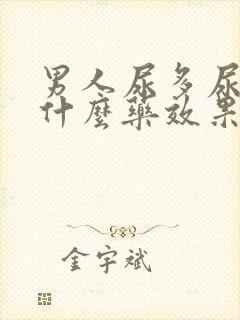 男人尿多尿
什麼藥效果
金宇斌